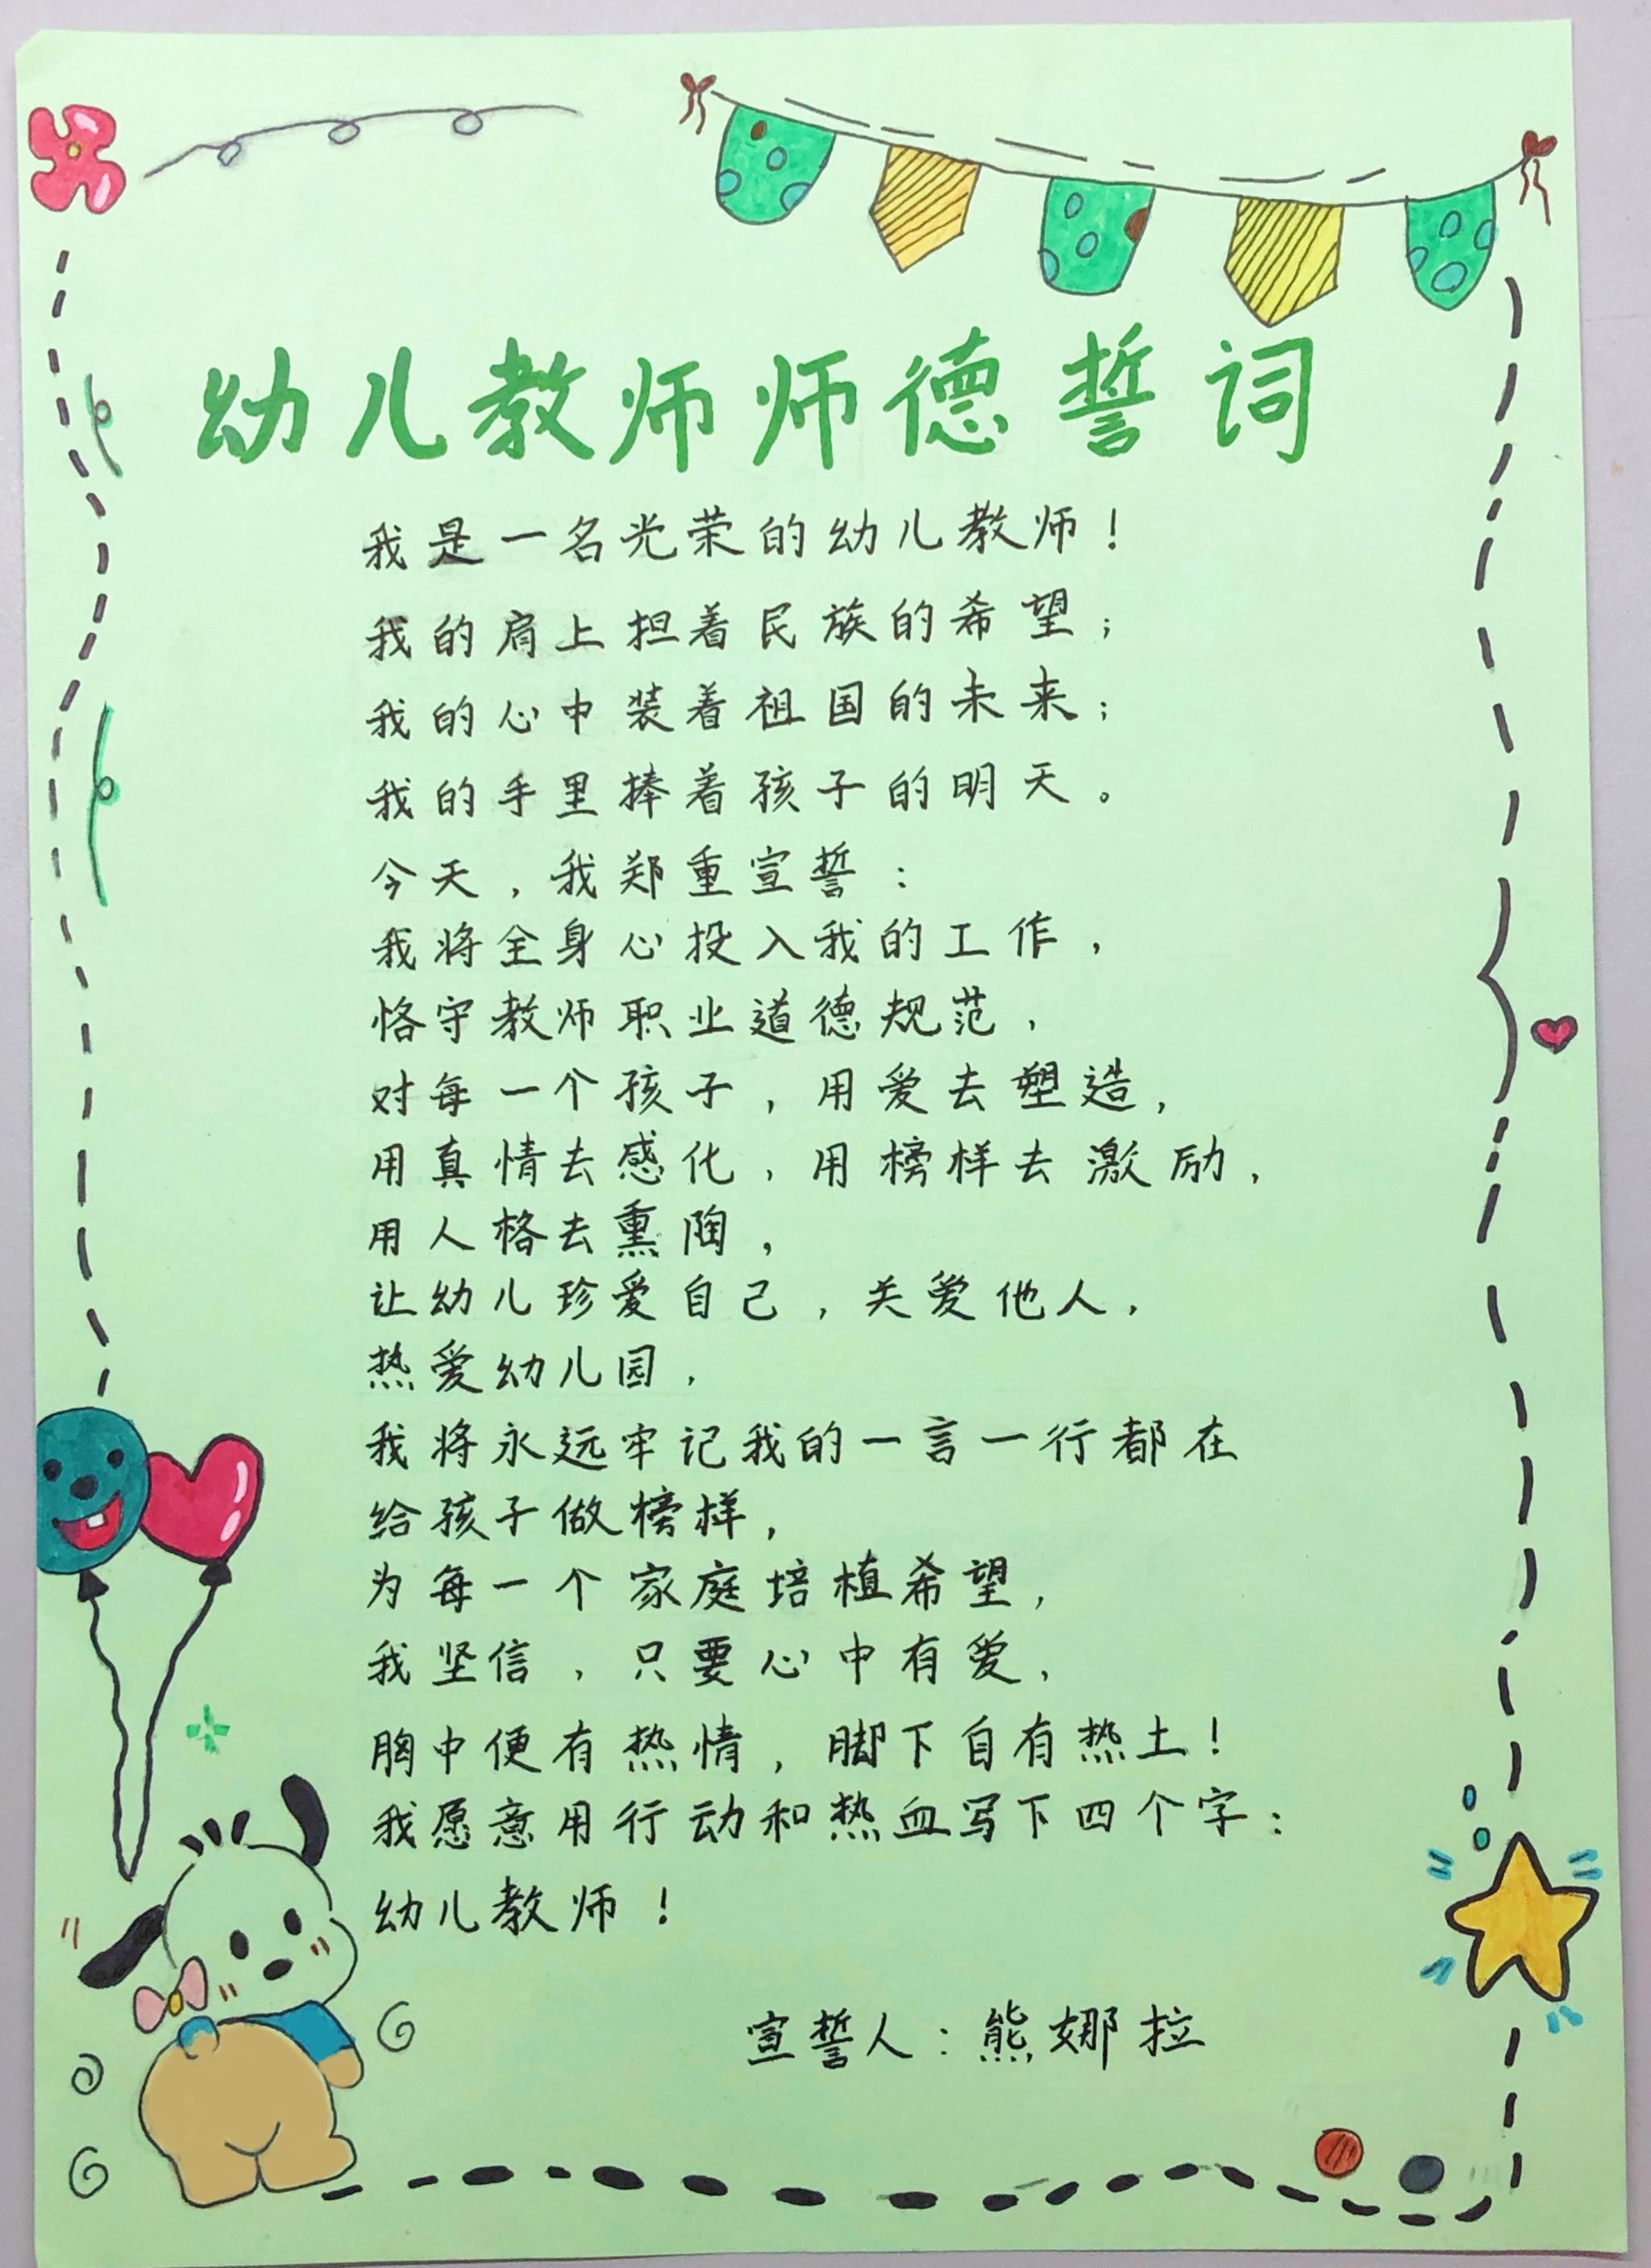 幼儿教师师德誓词
我是一名光荣的幼儿教师！
我的肩上担着民族的希望；
我的心中装着祖国的未来；
我的手里捧着孩子的明天。
今天，我郑重宣誓：
我将全身心投入我的工作，
恪守教师职业道德规范，
对每一个孩子，用爱去塑造，
用真情去感化，用榜样去激励，
用人格去熏陶，
让幼儿珍爱自己，关爱他人，
热爱幼儿园，
我将永远牢记我的一言一行都在
给孩子做榜样，
为每一个家庭培植希望，
我坚信，只要心中有爱，
胸中便有热情，脚下自有热土！
我愿意用行动和热血写下四个字：
幼儿教师！
宣誓人：熊娜拉